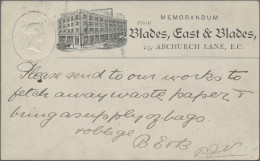 MEMORANDUM
FROM
Blades, East & Blades,
23, ABCHURCH LANE, E.C.
Please send to our works to
fetch away waste paper &
bring a supply of bags.
& oblige
B E & B